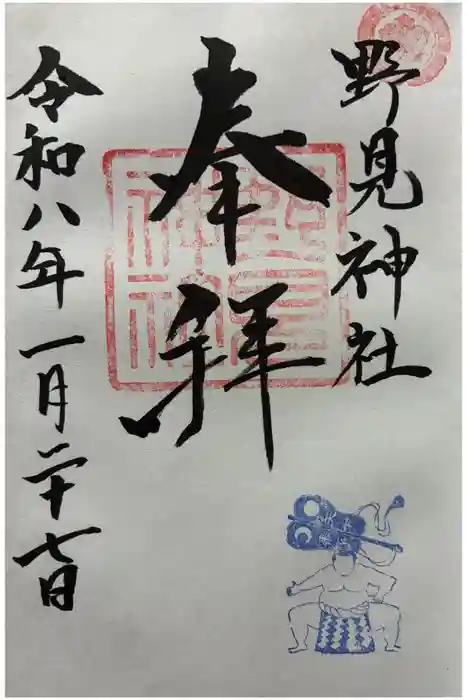 野見神社
奉拝
令和八年一月二十七日